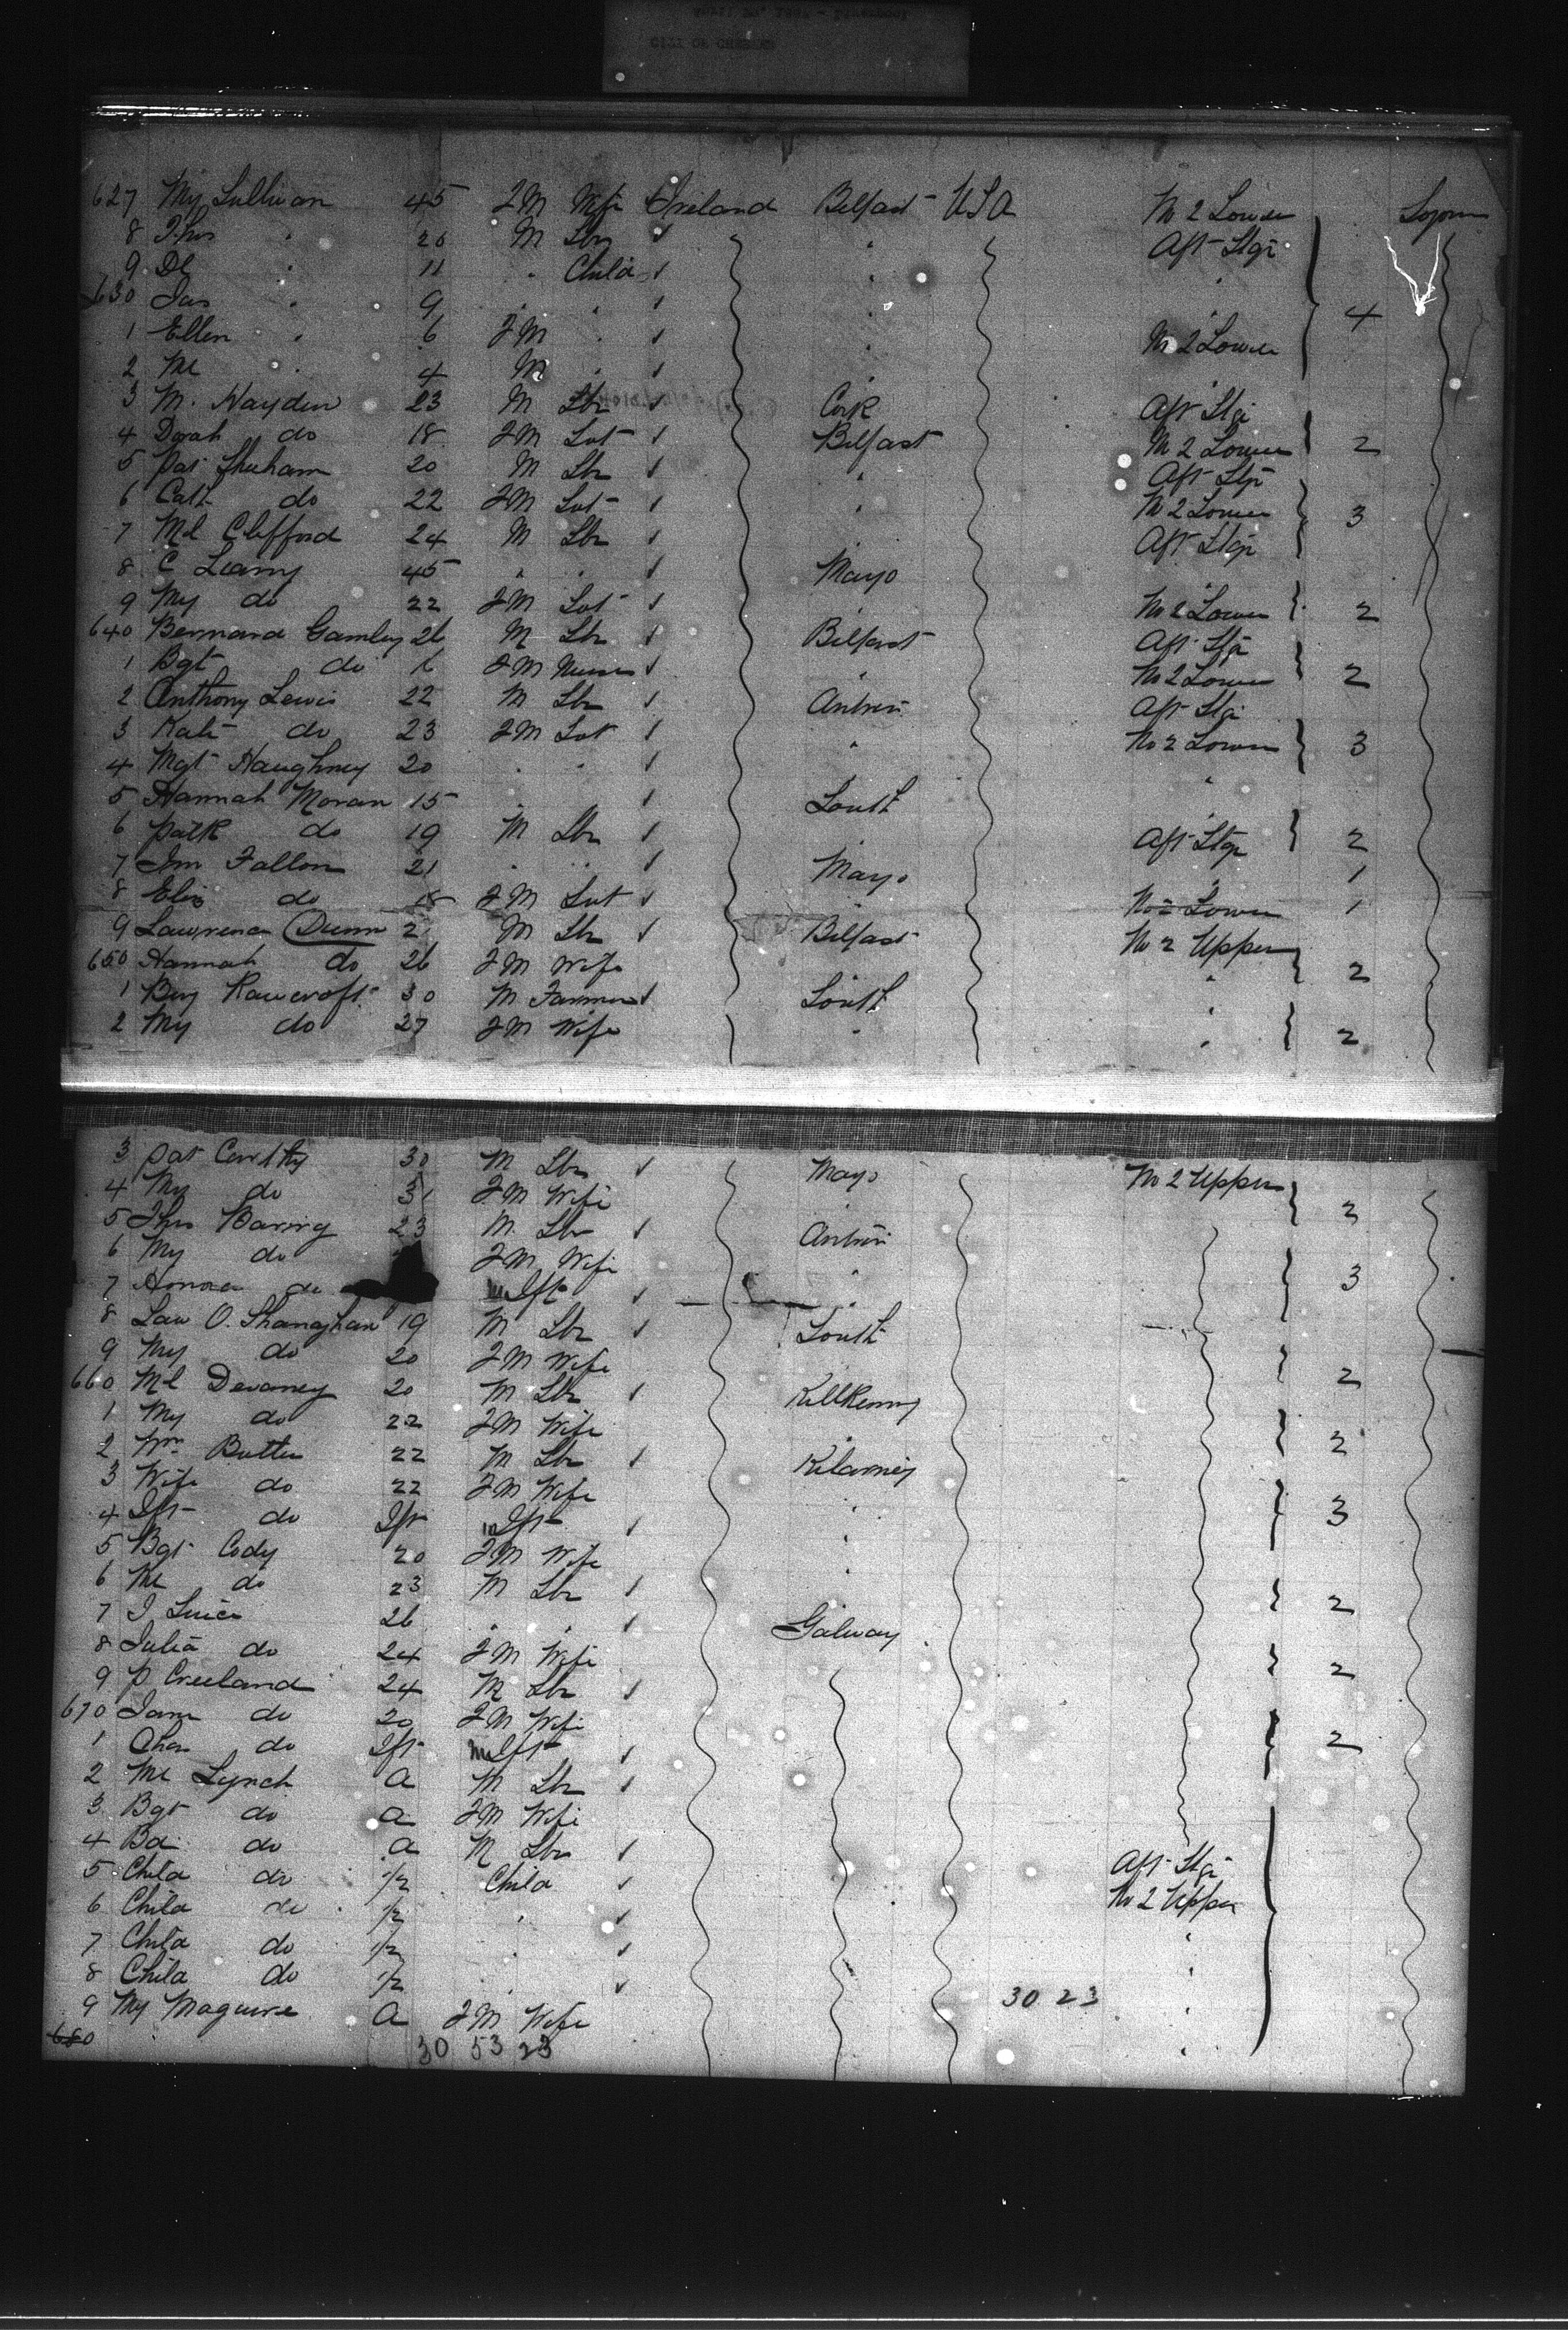 CITY OF CHESTER
627 My Sullivan 45 FM Wife Ireland Belfast USA No 2 Lower Sojourn
8 Thos " 20 M Lbr " Aft Stge
9 Dl " 11 " Child "
630 Jas " 9 " " " 4
1 Ellen " 6 FM " " No 2 Lower
2 Ml " 4 M " " "
3 M. Hayden 23 M Lbr Cork Aft Stge
4 Dorah do 18 FM Svt Belfast No 2 Lower 2
5 Pat Sheham 20 M Lbr " Aft Stge
6 Cath do 22 FM Svt " No 2 Lower 3
7 Ml Clifford 24 M Lbr Aft Stge
8 C Leamy 45 " " Mayo "
9 My do 22 FM Svt No 2 Lower 2
640 Bernard Gamley 26 M Lbr Belfast Aft Stge
1 Bgt do FM Nurse " No 2 Lower 2
2 Anthony Lewis 22 M Lbr Antrim Aft Stge
3 Kate do 23 FM Svt " No 2 Lower 3
4 Mgt Haughney 20 " " "
5 Hannah Moran 15 " Louth "
6 Patk do 19 M Lbr Aft Stge 2
7 Jm Fallon 21 " " Mayo " 1
8 Eliz do 18 FM Svt No 2 Lower 1
9 Lawrence Dunn 2 M Lbr Belfast No 2 Upper
650 Hannah do 26 FM Wife " 2
1 Benj Rawcroft 30 M Farmer Louth "
2 My do 27 FM Wife " " 2
3 Pat Carthy 30 M Lbr Mayo No 2 Upper
4 My do 31 FM Wife 2
5 Thos Baring 23 M Lbr Antrim
6 My do FM Wife 3
7 Honora do m Ift "
8 Law O. Shanghan 19 M Lbr Louth
9 My do 20 FM Wife 2
660 Ml Devaney 20 M Lbr Killkenny
1 My do 22 FM Wife " 2
2 Wm Butler 22 M Lbr Kilarney
3 Wife do 22 FM Wife 3
4 Ift do Ift m Ift "
5 Bgt Cody 20 FM Wife "
6 Ml do 23 M Lbr 2
7 J Luice 26 " " Galway
8 Julia do 24 FM Wife 2
9 P Creeland 24 M Lbr
670 Jane do 20 FM Wife 2
1 Chas do Ift m Ift
2 Ml Lynch A M Lbr
3 Bgt do A FM Wife
4 Bd do A M Lbr Aft Stge
5 Child do 1/2 Child No 2 Upper
6 Child do 1/2 "
7 Child do 1/2 " "
8 Child do 1/2 " "
9 My Maguire A FM Wife 30 23 "
680 30 53 23 "